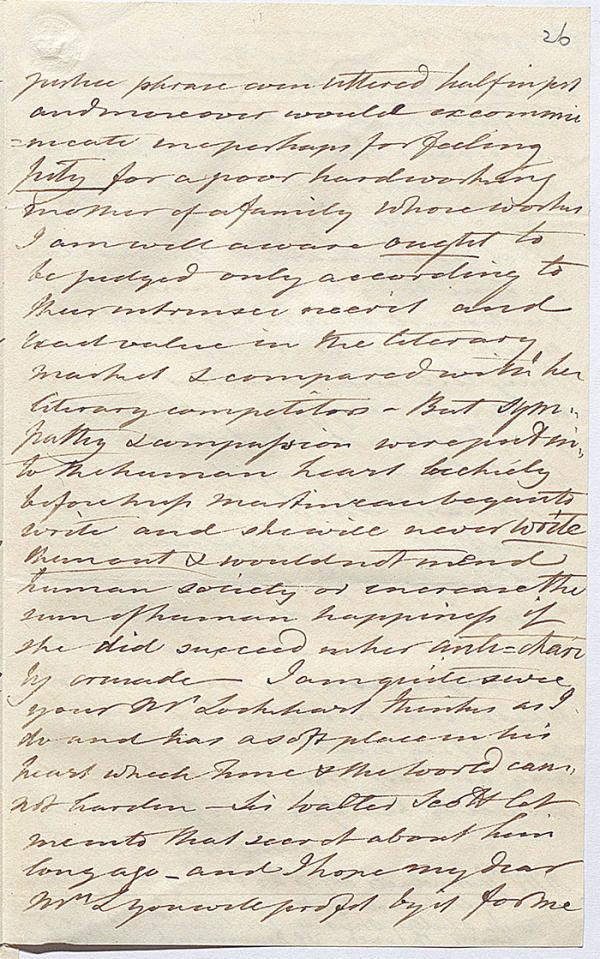 26
justice phrase even uttered half in jest
and moreover would excommu
=nicate me perhaps for feeling
pity for a poor hardworking
mother of a family whose works
I am well aware ought to
be judged only according to
their intrinsic merit and
exact value in the literary
market & compared with her
literary competitors – But sym-
pathy & compassion were put in-
to the human heart luckily
before Miss Martineau began to
write and she will never write
them out & would not mend
human society or increase the
sum of human happiness if
she did succeed in her anti=chari
ty crusade – I am quite sure
your Mr Lockhart thinks as I
do and has a soft place in his
heart which Time & the World can-
not harden – Sir Walter Scott let
me into that secret about him
long ago – and I hope my dear
Mrs L you will profit by it for me